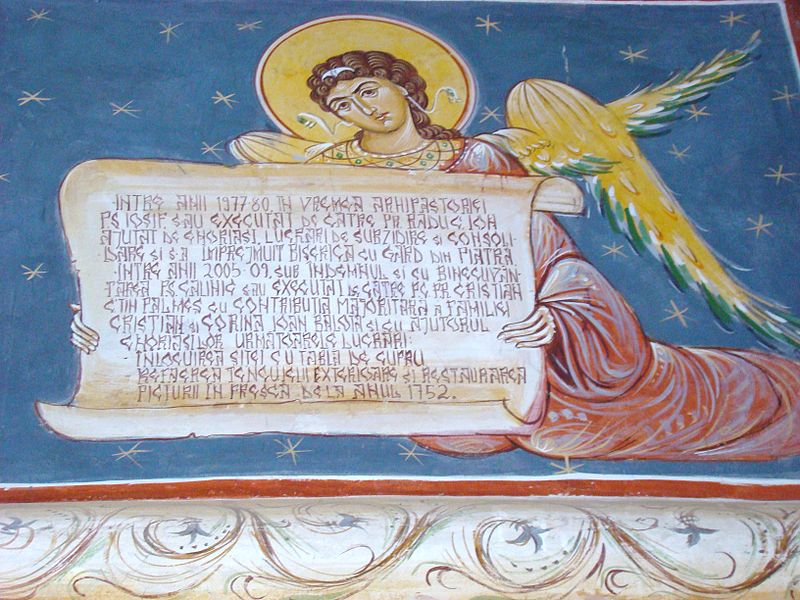 INTRE ANII 1977-80 IN VREMEA ARHIPASTORIEI
PS IOSIF, S-AU EXECUTAT DE CATRE PR. RADUC ION
AJUTAT DE ENORIASI, LUCRARI DE SUBZIDIRE SI CONSOLI
DARE SI S-A IMPREJMUIT BISERICA CU GARD DIN PIATRA
INTRE ANII 2005-09, SUB INDEMNUL SI CU BINECUVÂN
TAREA PS CALINIC S-AU EXECUTAT DE CATRE PC PR CRISTIAN
C-TIN PALMES CU CONTRIBUTIA MAJORITARA A FAMILIEI
CRISTIAN SI CORINA IOAN BALOIA SI CU AJUTORUL
ENORIASILOR URMATOARELE LUCRARI:
INLOCUIREA SITEI CU TABLA DE CUPRU
REFACEREA TENCUIELII EXTERIOARE SI RESTAURAREA
PICTURII IN FRESCA DE LA ANUL 1752.